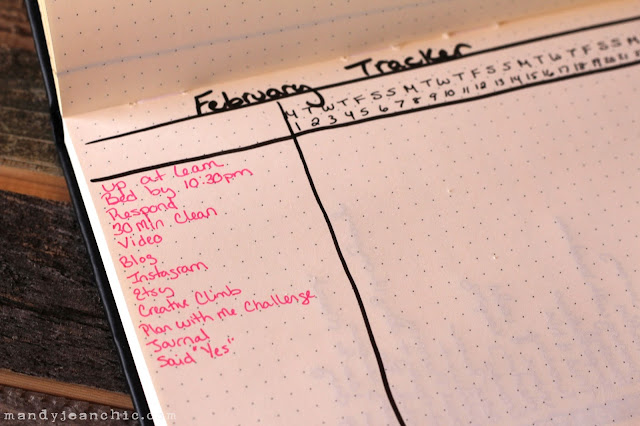 February Tracker
M T W T F S S M T W T F S S M T W T F S S M
1 2 3 4 5 6 7 8 9 10 11 12 13 14 15 16 17 18 19 20 21
up at 6am
Bed by 10:30pm
Respond
30 Min Clean
Video
Blog
Instagram
Etsy
Creative Climb
Plan with me Challenge
Journal
Said "Yes"
mandyjeanchic.com